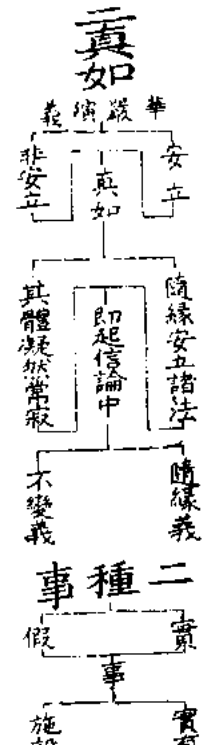 二真如
華嚴演義
安立
真如
非安立
隨緣安立諸法
即起信論中
其體凝然常寂
隨緣義
不變義
二種事
實
事
假
實有
施設